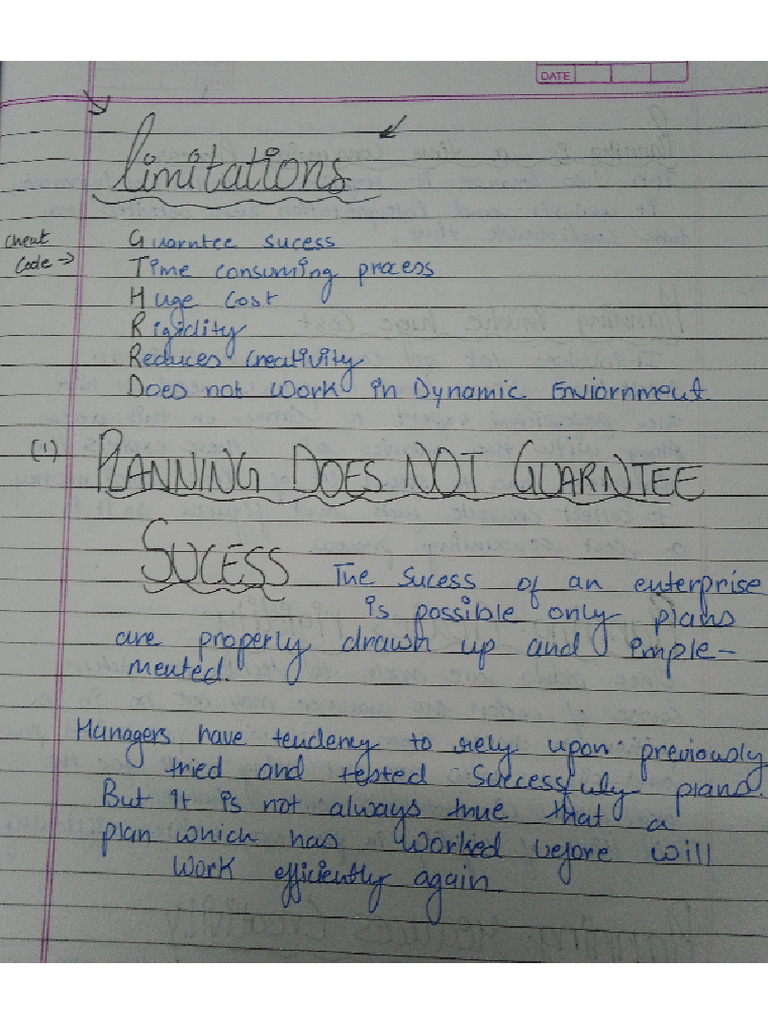 DATE
Limitations
cheat
Code →
Guarntee sucess
Time consuming process
Huge Cost
Rigidity
Reduces Creativity
Does not work in Dynamic Eniornment
(1) PLANNING DOES NOT GUARNTEE
SUCESS The sucess of an enterprise
is possible only plans
are properly drawn up and imple-
mented.
Managers have tendency to rely upon previously
tried and tested successfuly plans.
But it is not always true that a
plan which has worked before will
work efficiently again